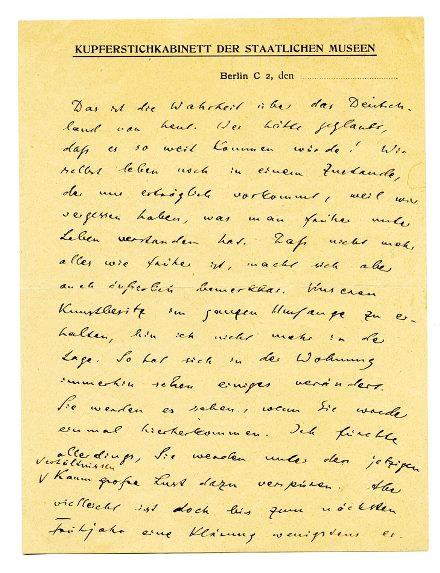 KUPFERSTICHKABINETT DER STAATLICHEN MUSEEN
Berlin C 2, den
Das ist die Wahrheit über das Deutsch-
land von heut. Wer hätte geglaubt,
daß es so weit kommen würde! Wir
selbst leben noch in einem Zustande,
der uns erträglich vorkommt, weil wir
vergessen haben, was man früher unter
Leben verstanden hat. Daß nicht mehr
alles wie früher ist, macht sich aber
auch äußerlich bemerkbar. Unseren
Kunstbesitz im ganzen Umfange zu er-
halten, bin ich nicht mehr in der
Lage. So hat sich in der Wohnung
immerhin schon einiges verändert.
Sie werden es sehen, wenn Sie wieder
einmal hierherkommen. Ich fürchte
allerdings, Sie werden unter den jetzigen
Verhältnissen
kaum große Lust dazu verspüren. Aber
vielleicht ist doch bis zum nächsten
Frühjahr eine Klärung wenigstens er-